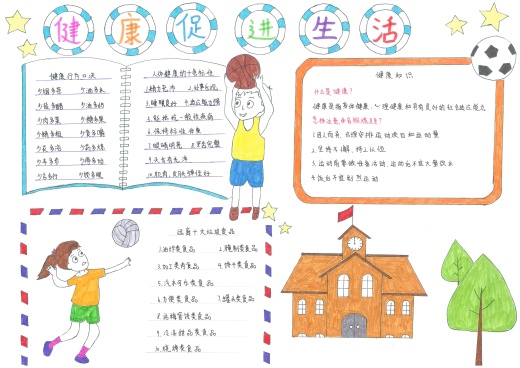 健康促进生活
健康行为口诀
少烟多茶 少油多水
少盐多醋 少酒多奶
少肉多菜
少糖多粗
人体健康的十条标准
1.精力充沛 2.处事乐观
3.睡眠良好 4.适应能力强
5.能抵抗一般性疾病
6.保持标准体重
7.眼睛明亮 8.牙齿完整
9.头有光泽
10.肌肉、皮肤弹性好
健康知识
什么是健康?
健康是指身体健康、心理健康和有良好的社会适应能力
怎样注意体育锻炼?
1.因人而异,合理安排运动项目和运动量
2.坚持不懈、持之以恒
3.运动前要做准备活动,运动后不宜大量饮水
4.饭后不宜剧烈运动
远离十大垃圾食品
1.油炸类食品 2.腌制类食品
3.加工类肉食品 4.饼干类食品
5.汽水可乐类食品
6.方便类食品 7.罐头类食品
8.话梅蜜饯类食品
9.冷冻甜品类食品
10.烧烤类食品